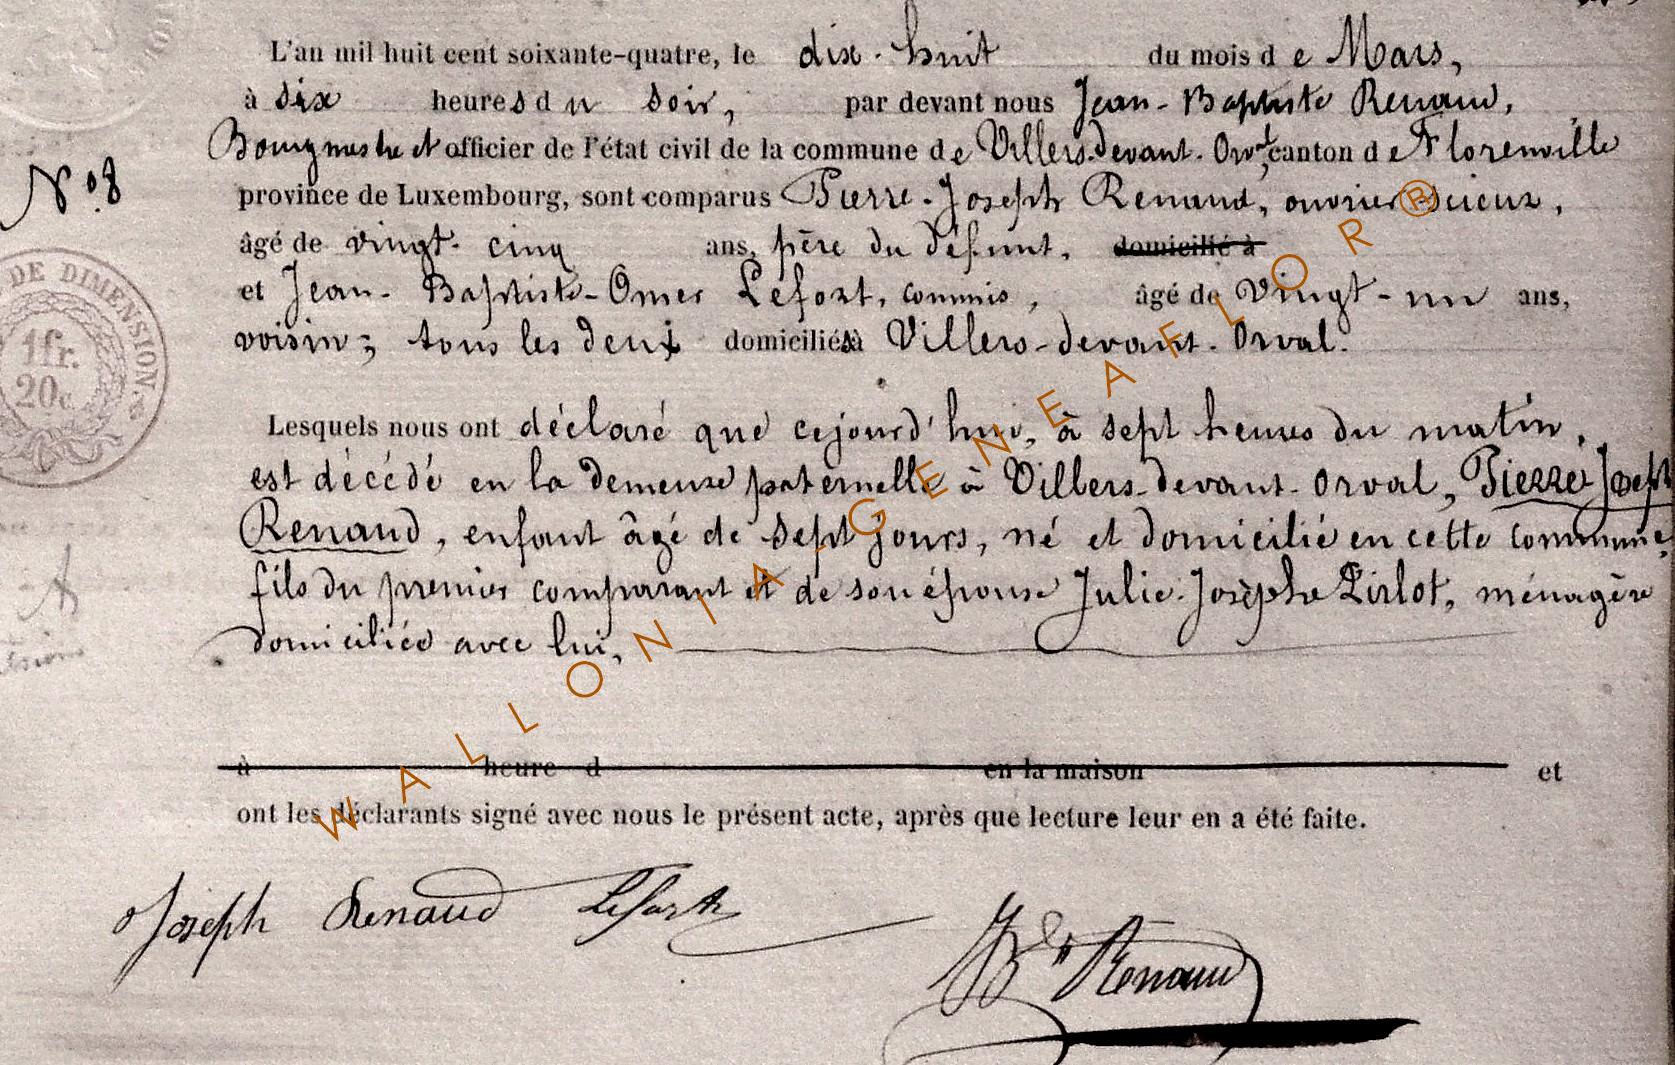 L'an mil huit cent soixante-quatre, le dix-huit du mois de Mars,
à six heures du soir, par devant nous Jean-Baptiste Renaud,
Bourgmestre et officier de l'état civil de la commune de Villers-devant-Orval, canton de Florenville
N° 8
province de Luxembourg, sont comparus Pierre-Joseph Renaud, ouvrier scieur,
âgé de vingt-cinq ans, père du défunt, domicilié à
et Jean-Baptiste-Omer Lefort, commis, âgé de vingt-un ans,
voisin; tous les deux domiciliés à Villers-devant-Orval.
DE DIMENSION.
1 fr.
20 c.
Lesquels nous ont déclaré que cejourd'hui, à sept heures du matin,
est décédé en la demeure paternelle à Villers-devant-Orval, Pierre-Joseph
Renaud, enfant âgé de sept jours, né et domicilié en cette commune,
fils du premier comparant et de son épouse Julie-Josèphe Pirlot, ménagère
domiciliée avec lui,
à heure d en la maison et
ont les déclarants signé avec nous le présent acte, après que lecture leur en a été faite.
Joseph Renaud Lefort JBte Renaud
WALLONIA-GENEAFLOR®